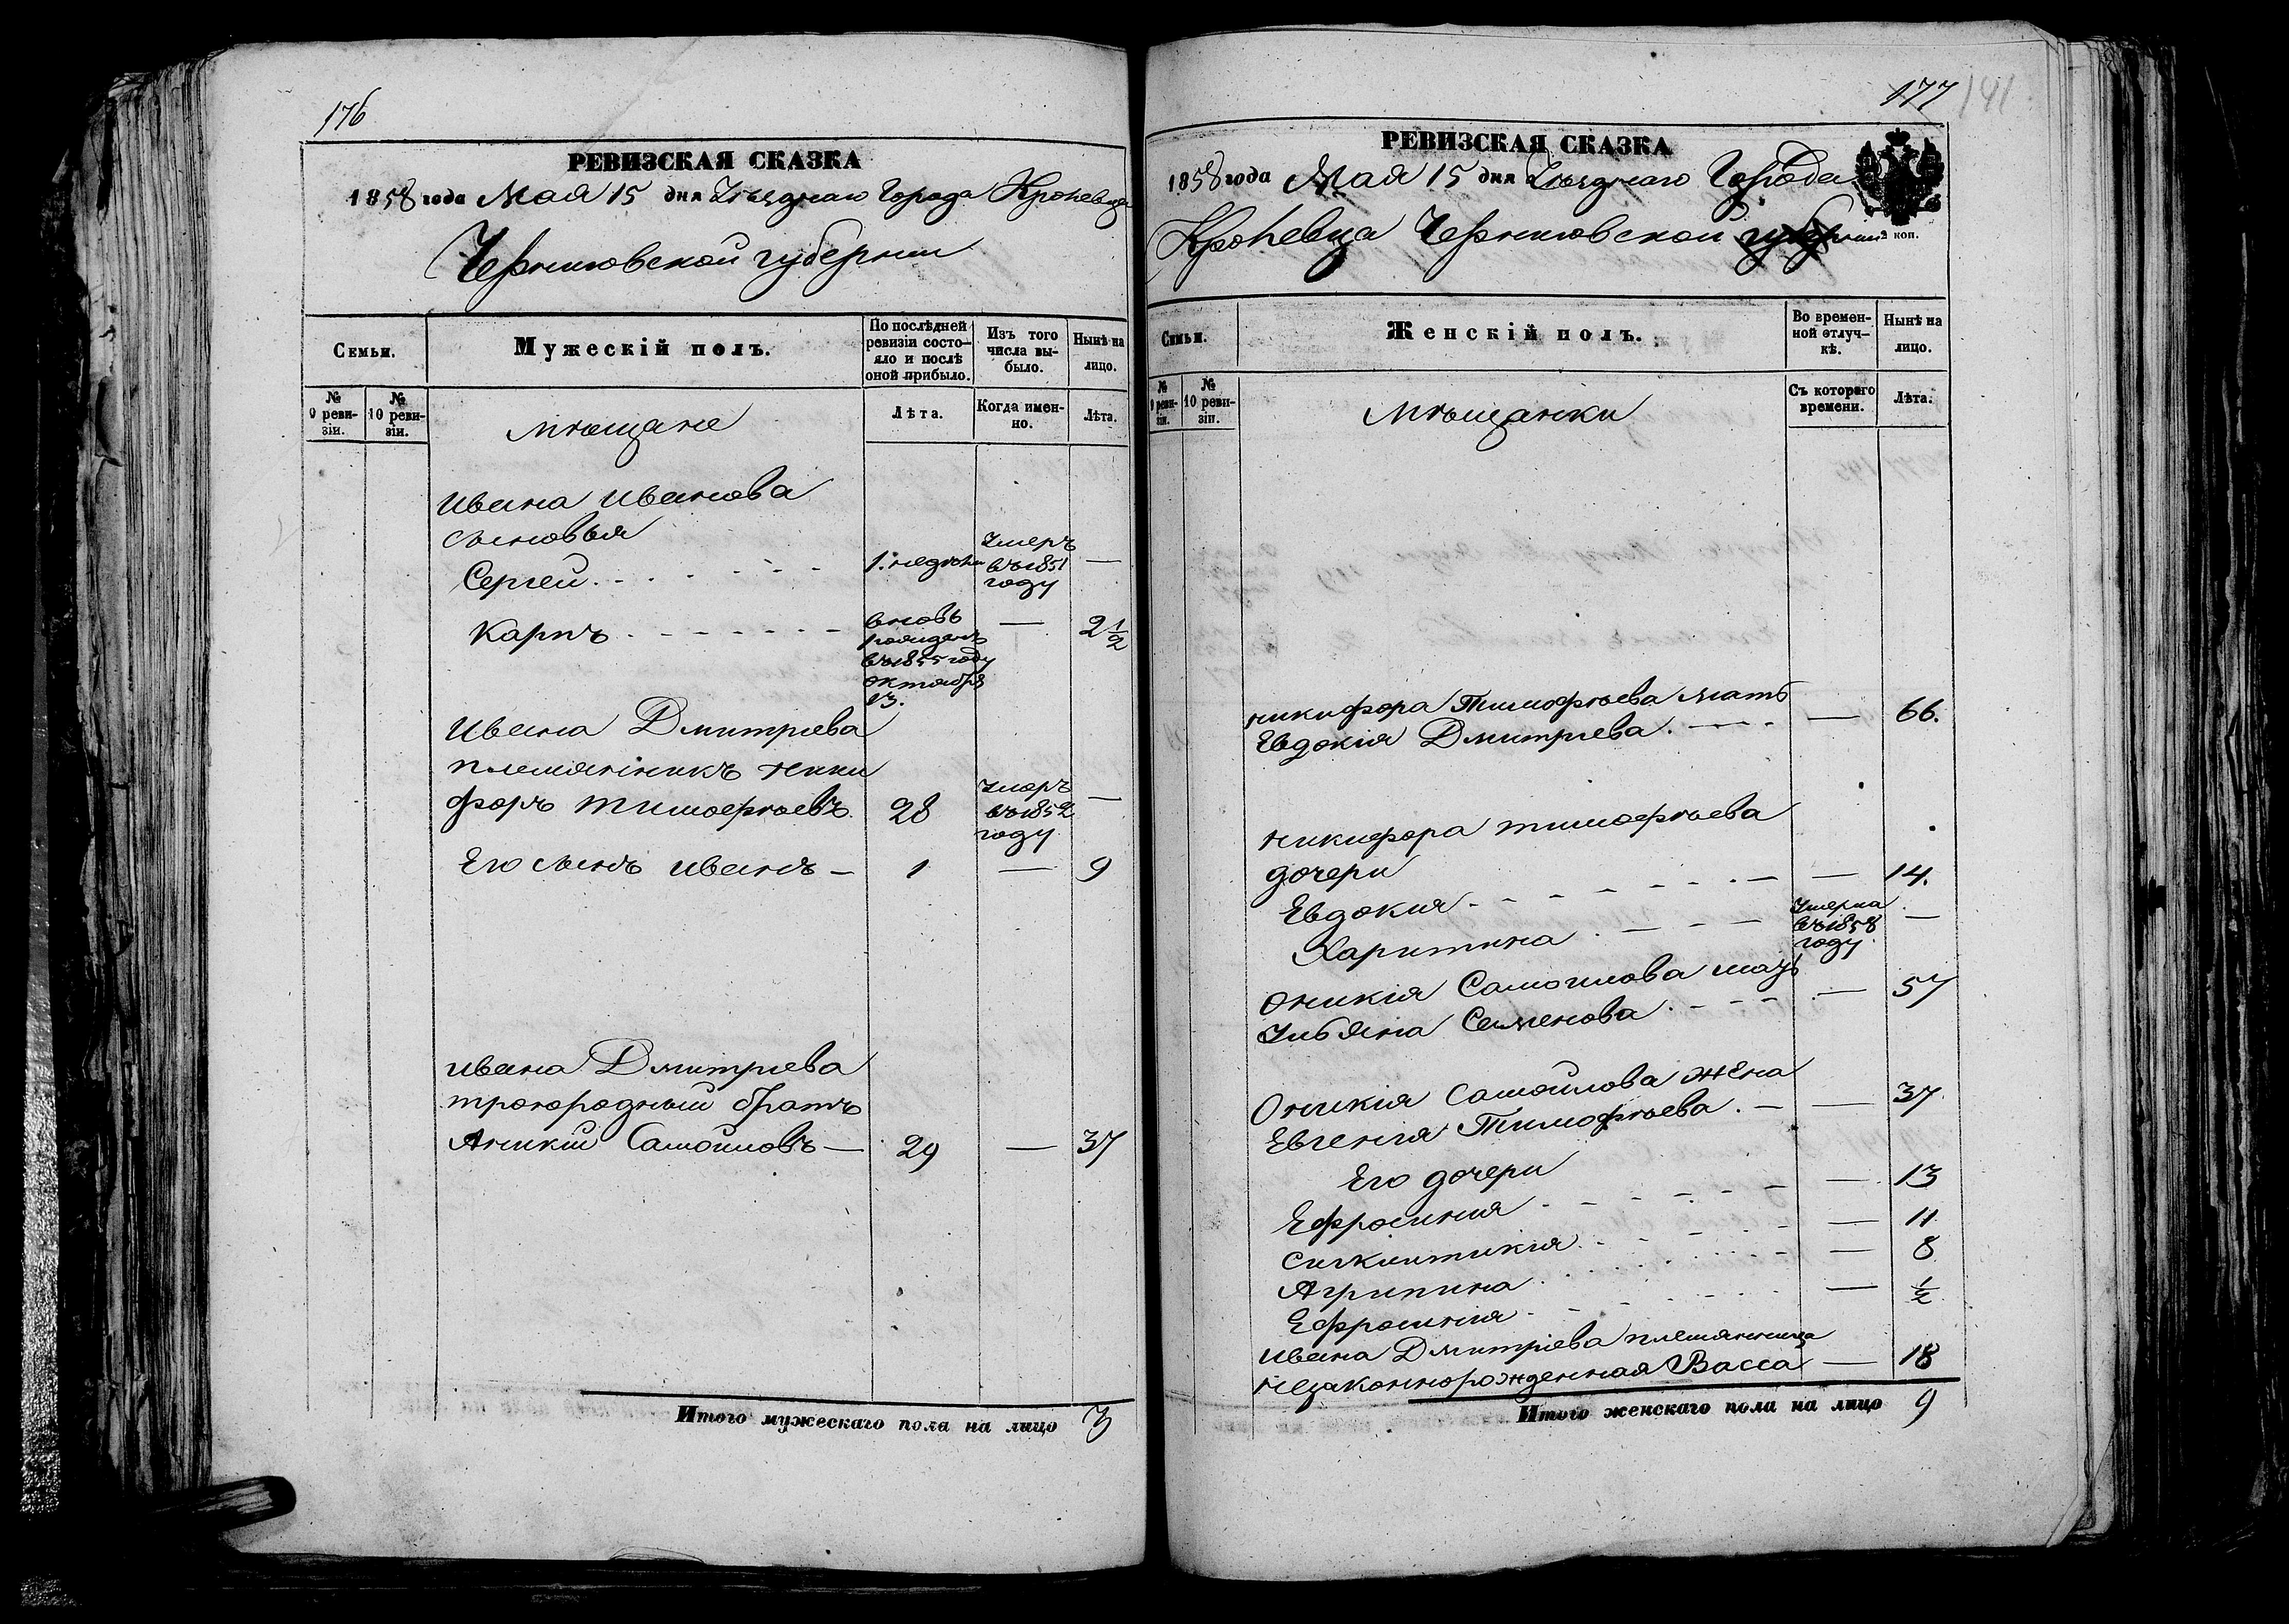 176
РЕВИЗСКАЯ СКАЗКА
1858 года Мая 15 дня Уѣзднаго Города Кролевца
Черниговской губернии
Семьи.
Мужескій полъ.
По послѣдней ревизіи состояло и послѣ оной прибыло.
Изъ того числа выбыло.
Нынѣ на лицо.
№ 9 ревизіи.
№ 10 ревизіи.
мѣщане
Лѣта.
Когда именно.
Лѣта.
Ивана Иванова
сыновья
Сергей 1. недѣли Умеръ въ 1851 году —
Карпъ вновь рожденъ въ 1855 году октября 13. — 2 1/2
Ивана Дмитриева
племянникъ Ники
форъ Тимофѣевъ 28 Умеръ въ 1852 году —
Его сынъ Иванъ — 1 — 9
Ивана Дмитриева
троюродный братъ
Аникий Самойловъ — 29 — 37
Итого мужескаго пола на лицо 3
177
141
РЕВИЗСКАЯ СКАЗКА
1858 года Мая 15 дня Уѣзднаго Города
Кролевца Черниговской губернии
2 коп.
Семьи.
Женскій полъ.
Во временной отлучкѣ.
Нынѣ на лицо.
№ 9 ревизіи.
№ 10 ревизіи.
Мѣщанки
Съ котораго времени.
Лѣта.
Никифора Тимофѣева мать
Евдокия Дмитриева. — 66.
Никифора Тимофѣева
дочери
Евдокия — 14.
Харитина Умерла въ 1858 году —
Оникия Самоилова мать
Ульяна Семенова — 57
Оникия Самойлова жена
Евгения Тимофѣева. — 37
Его дочери
Ефросиния — 13
Сигклитикия — 11
Агрипина — 8
Ефросиния — 1/2
Ивана Дмитриева племянница
незаконнорожденная Васса — 18
Итого женскаго пола на лицо 9